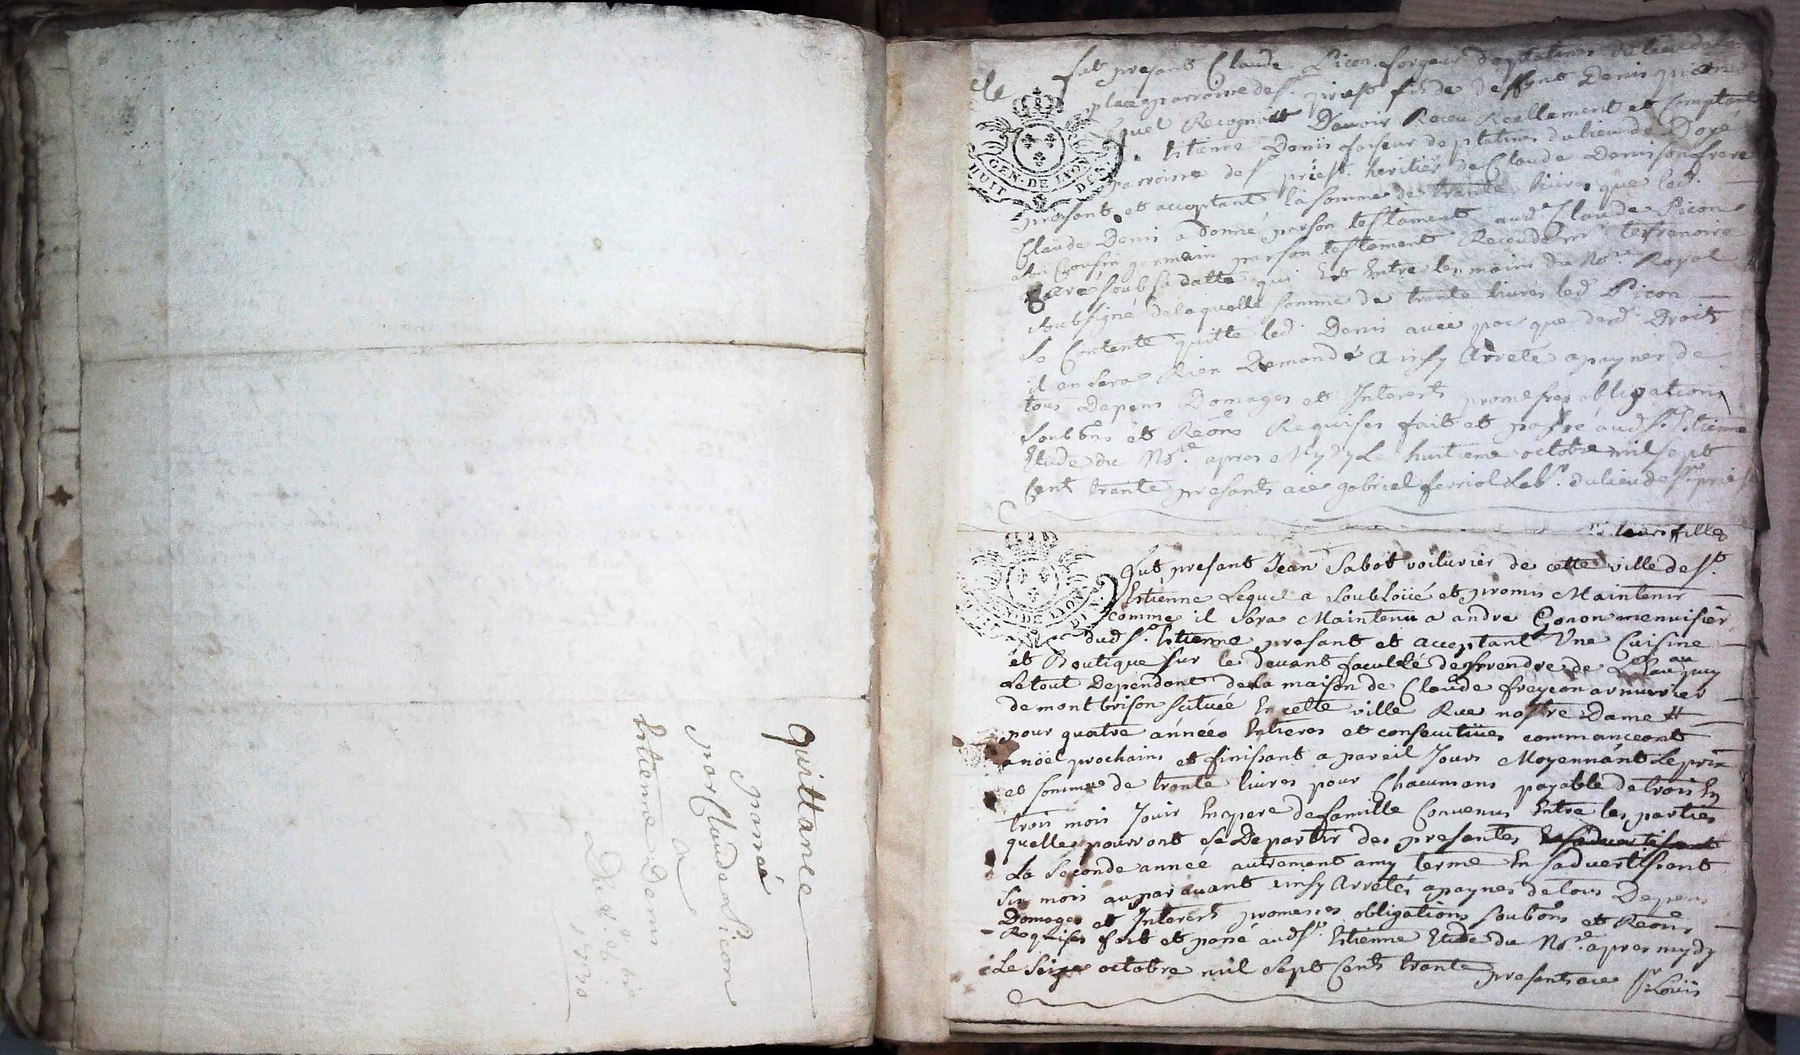 Quittance
passée
par Claude Picon
a
Estienne Denis
Du 8e 8bre
1730
Fut presant Claude Picon forgeur de platines du lieu de la
place parroisse de St. priest fils de deffunt Denis picon
lequel Recognoit D'avoir Receu Reellement et comptant
Estienne Denis faiseur de platines du lieu de
parroisse de St. priest heritier de Claude Denis son frere
presant et acceptant la somme de trante livres que led.
Claude Denis a donné par son testament aud. Claude Picon
son Cousin germain par son testament Receu de Me terrenoire
soub sa datte qui Est Entre les mains du Nore. Royal
soubsigné de laquelle somme de trante livres led. Picon
se Contente quitte led. Denis avec pac que desd. Droits
il en sera Rien Demandé Ainsy Arreté a paynes de
tous Depens Domages et Interests promesses obligations
soubons et Reons Requises fait et passé aud St. Etienne
Etude du Nore. apres Mydy Le huitieme octobre mil sept
Cent trante presants a ce gabriel ferriol Labr. du lieu de St. priest
GEN. DE LYON
HUIT DEN.
Fut presant Jean Sabot voiturier de cette ville de St.
Estienne Lequel a soubloüé et promis Maintenir
comme il sera Maintenu a andre Gonon menuisier
dud St. Etienne presant et acceptant Une Cuisine
et Boutique sur le devant faculté de prendre de L'eau au puy
Le tout Dependant de La maison de Claude freycon armurier
de montbrison scituée En cette ville Rue nostre Dame #
pour quatre années Entieres et consecutives commanceants
a noël prochains et finissant a pareil Jours Moyennant Le prix
et somme de trante livres pour Chacun ans payable de trois En
trois mois Jouir En pere de famille Convenus Entre les parties
quelles pourront se Departir des presantes
La seconde année autrement a my terme En sadvertissant
six mois auparavant Einsy Arretés a paynes de tous Depens
Domages et Interests promesses obligations soubons et Reons
Requises fait et passé aud St. Etienne Etude du Nore. apres mydy
Le Seize octobre mil sept Cent trante presants a ce Sr Loüis
GEN. DE LYON